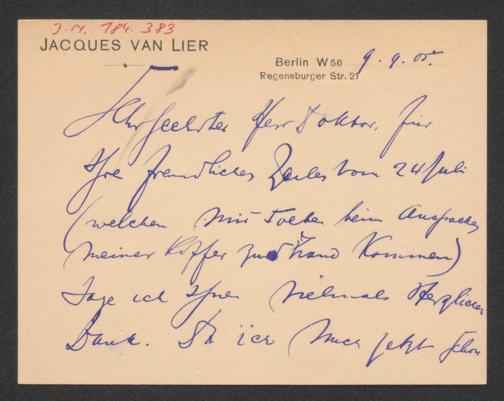 J. N. 184.383
JACQUES VAN LIER
Berlin W 50
Regensburger Str. 21
9. 9. 05.
Sehr geehrter Herr Doktor, für
Ihre freundlichen Zeilen vom 24 Juli
(welchen mir soeben beim Auspacken
meiner Koffer zur Hand kommen)
sage ich Ihnen vielmals Herzlichen
Dank. Da ich mich jetzt schon